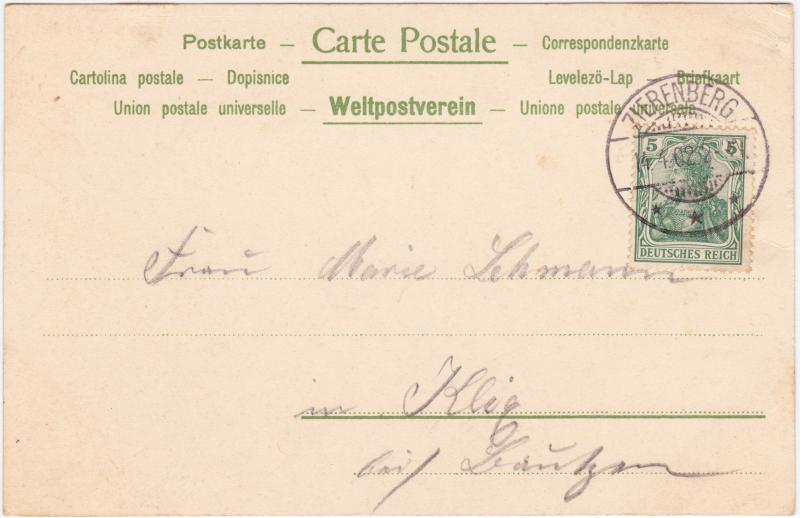 Postkarte – Carte Postale – Correspondenzkarte
Cartolina postale — Dopisnice Levelezö-Lap — Briefkaart
Union postale universelle – Weltpostverein – Unione postale universale
5 5
DEUTSCHES REICH
Frau Marie Lehmann
in Klix
bei Bautzen